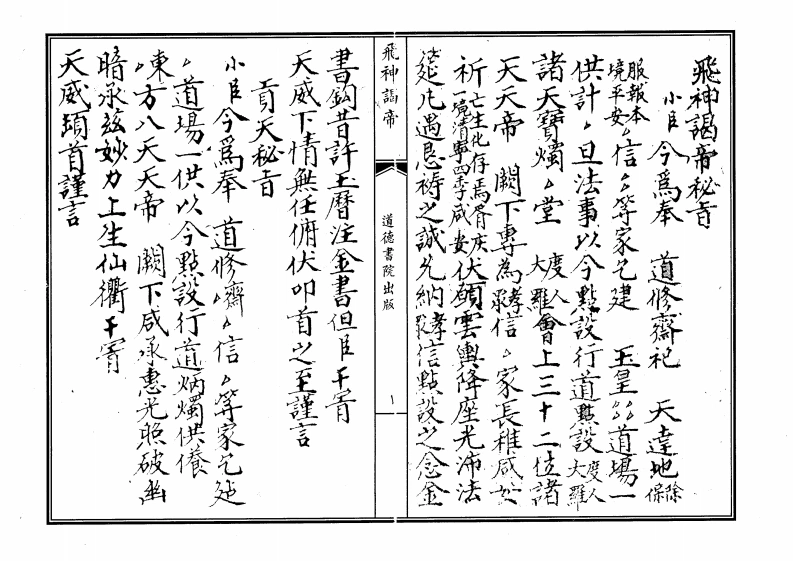 飛神謁帝秘旨
小臣今爲奉　道修齋祀　天達地
服報本
境平安〻信〻〻等家乞建　玉皇〻〻道場一
供計〻旦法事以今點設行道點設度人大羅
諸天寶燭〻堂　度人大羅會上三十二位諸
天天帝　闕下專為孝信〻家長稚咸
祈一境清寧四季咸安伏願雲輿降座光沛法
筵凡遇恳禱之誠允納孝信點設之念金
飛神謁帝
道德書院出版
書鈎昔許玉曆注金書但臣干冐
天威下情無任俯伏叩首之至謹言
貢天秘旨
小臣今爲奉　道修齋〻信〻〻等家乞延
〻道場一供以今點設行道炳燭供養
〻東方八天天帝　闕下咸承惠光照破幽
暗承茲妙力上生仙衢干冐
天威頓首謹言